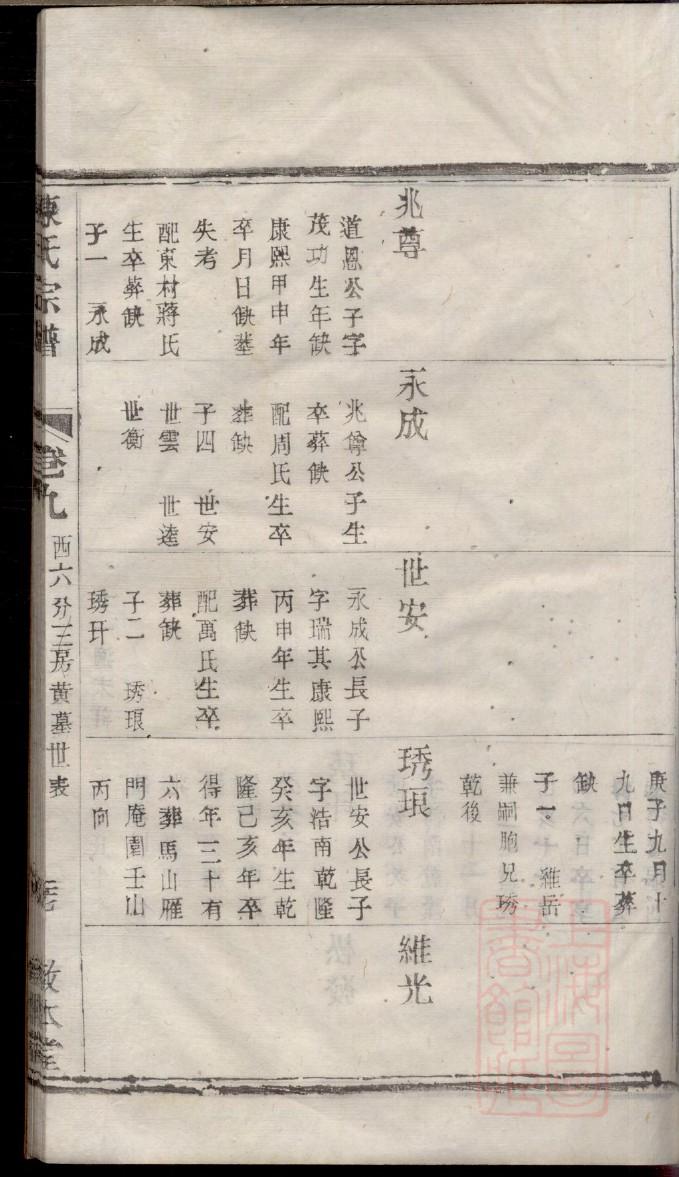 兆尊
道恩公子字
茂功生年缺
康熙甲申年
卒月日缺塟
失考
配東村蔣氏
生卒葬缺
子一　永成
永成
兆尊公子生
卒葬缺
配周氏生卒
葬缺
子四　世安
世雲　世逵
世衡
世安
永成公長子
字瑞其康熙
丙申年生卒
葬缺
配萬氏生卒
葬缺
子二　琇琅
琇玕
庚子九月十
九日生卒葬
缺
子一　維岳
兼嗣胞兄琇
乾後
琇琅
世安公長子
字浩南乾隆
癸亥年生乾
隆己亥年卒
得年三十有
六葬馬山雁
門庵園壬山
丙向
維光
陳氏宗譜
卷九
西六分三房黃墓世表
敦本堂